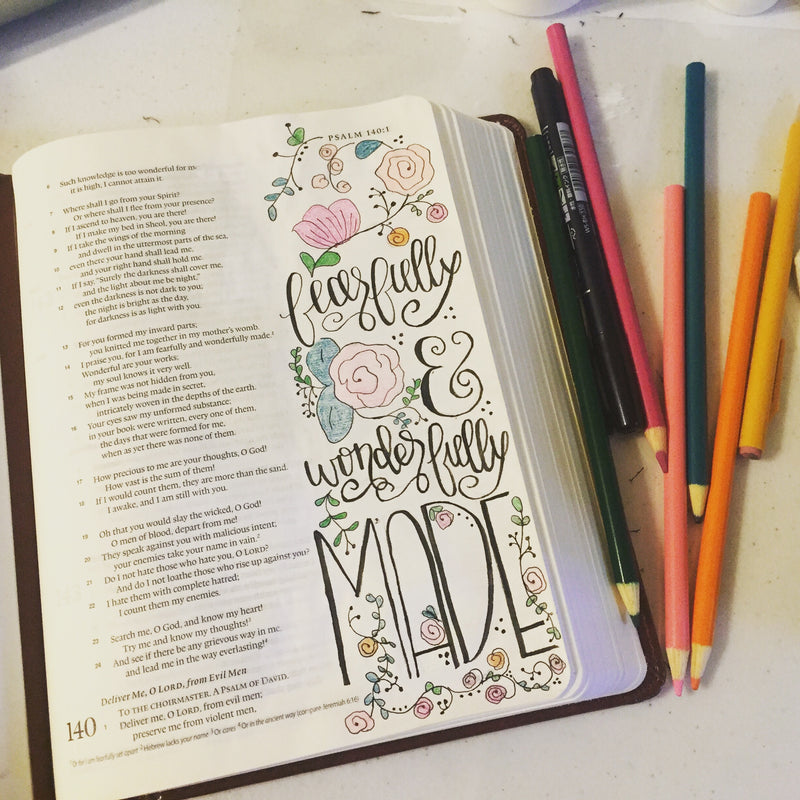 PSALM 140:1
6 Such knowledge is too wonderful for me;
it is high; I cannot attain it.
7 Where shall I go from your Spirit?
Or where shall I flee from your presence?
8 If I ascend to heaven, you are there!
If I make my bed in Sheol, you are there!
9 If I take the wings of the morning
and dwell in the uttermost parts of the sea,
10 even there your hand shall lead me,
and your right hand shall hold me.
11 If I say, "Surely the darkness shall cover me,
and the light about me be night,"
12 even the darkness is not dark to you;
the night is bright as the day,
for darkness is as light with you.
13 For you formed my inward parts;
you knitted me together in my mother's womb.
14 I praise you, for I am fearfully and wonderfully made.1
Wonderful are your works;
my soul knows it very well.
15 My frame was not hidden from you,
when I was being made in secret,
intricately woven in the depths of the earth.
16 Your eyes saw my unformed substance;
in your book were written, every one of them,
the days that were formed for me,
when as yet there was none of them.
17 How precious to me are your thoughts, O God!
How vast is the sum of them!
18 If I would count them, they are more than the sand.
I awake, and I am still with you.
19 Oh that you would slay the wicked, O God!
O men of blood, depart from me!
20 They speak against you with malicious intent;
your enemies take your name in vain.2
21 Do I not hate those who hate you, O LORD?
And do I not loathe those who rise up against you?
22 I hate them with complete hatred;
I count them my enemies.
23 Search me, O God, and know my heart!
Try me and know my thoughts!3
24 And see if there be any grievous way in me,
and lead me in the way everlasting!4
Deliver Me, O LORD, from Evil Men
TO THE CHOIRMASTER. A PSALM OF DAVID.
140 1 Deliver me, O LORD, from evil men;
preserve me from violent men,
1 Or for I am fearfully set apart 2 Hebrew lacks your name 3 Or cares 4 Or in the ancient way (compare Jeremiah 6:16)
fearfully
&
wonderfully
MADE